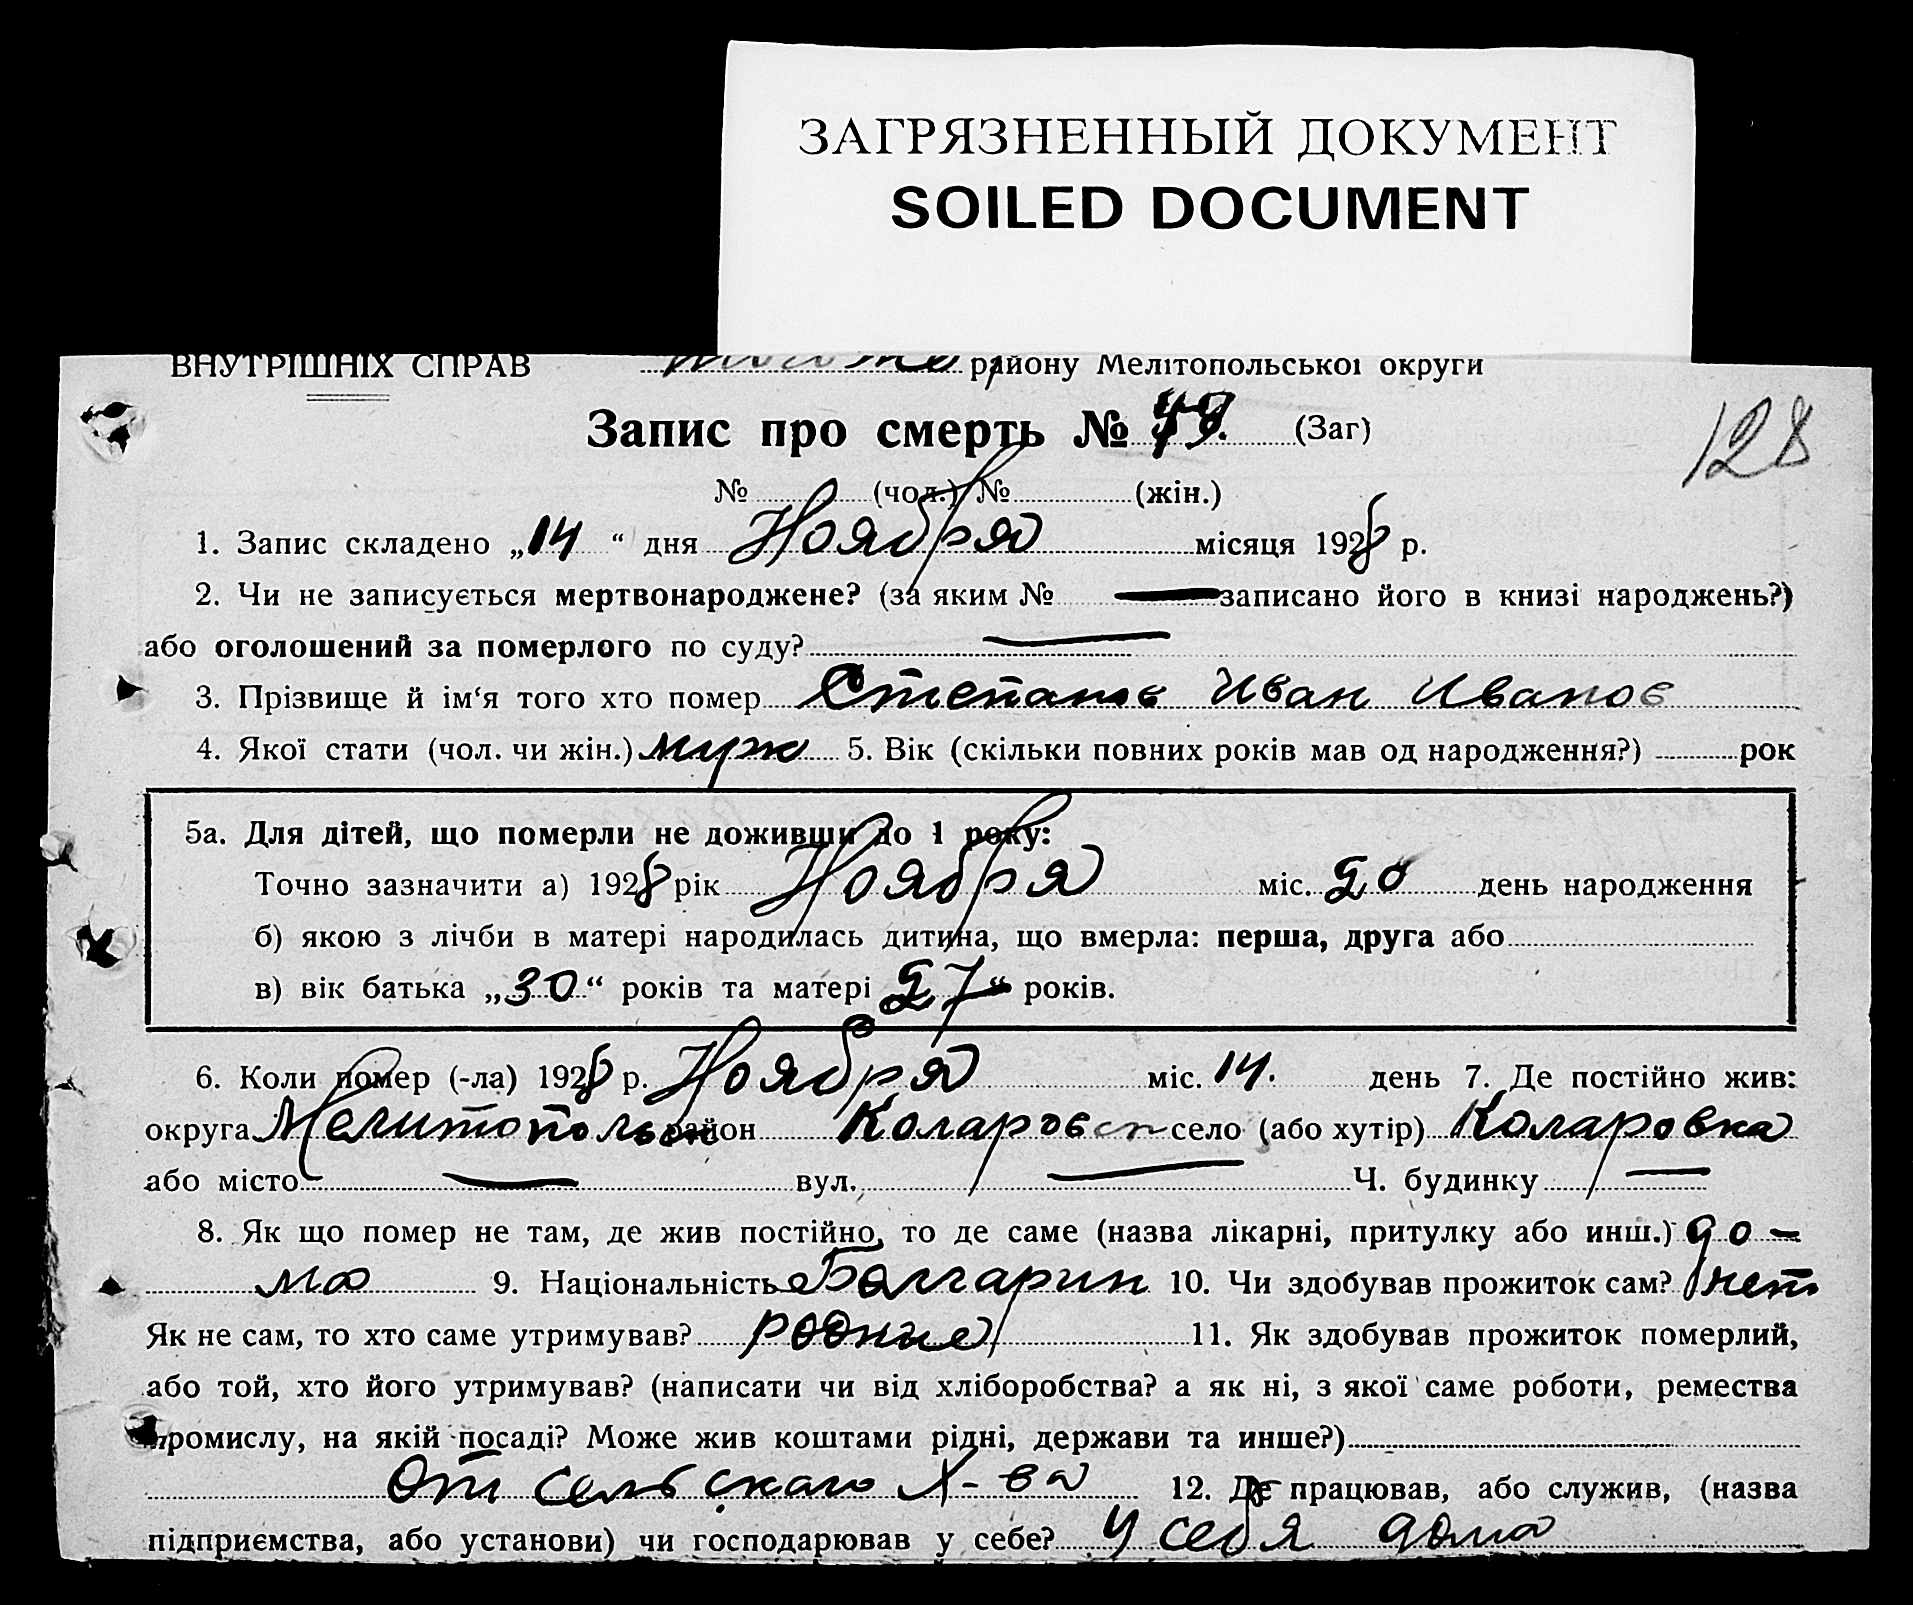 ЗАГРЯЗНЕННЫЙ ДОКУМЕНТ
SOILED DOCUMENT
ВНУТРІШНІХ СПРАВ району Мелітопольської округи
Запис про смерть № (Заг)
128
№ (чол.) № (жін.)
1. Запис складено „14“ дня Ноября місяця 1928 р.
2. Чи не записується мертвонароджене? (за яким № — записано його в книзі народжень?)
або оголошений за померлого по суду? —
3. Прізвище й ім‘я того хто помер Степанов Иван Иванов
4. Якої стати (чол. чи жін.) муж 5. Вік (скільки повних років мав од народження?) рок
5а. Для дітей, що померли не доживши до 1 року:
Точно зазначити а) 1928 рік Ноября міс. 20 день народження
б) якою з лічби в матері народилась дитина, що вмерла: перша, друга або
в) вік батька „30“ років та матері 27“ років.
6. Коли помер (-ла) 1928 р. Ноября міс. 14. день 7. Де постійно жив:
округа Мелитопольск район Коларовск село (або хутір) Коларовка
або місто — вул. — Ч. будинку —
8. Як що помер не там, де жив постійно, то де саме (назва лікарні, притулку або инш.) до-
ма 9. Національність Болгарин 10. Чи здобував прожиток сам? нет
Як не сам, то хто саме утримував? родные 11. Як здобував прожиток померлий,
або той, хто його утримував? (написати чи від хліборобства? а як ні, з якої саме роботи, ремества
промислу, на якій посаді? Може жив коштами рідні, держави та инше?)
От сельскаго х-ва 12. Де працював, або служив, (назва
підприємства, або установи) чи господарював у себе? У себя дома